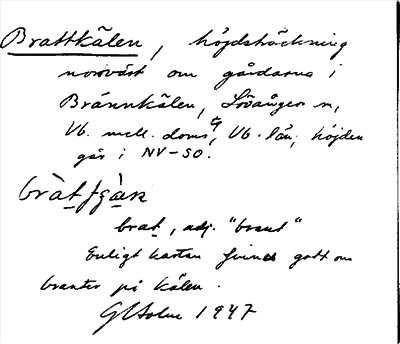 Brattkälen, höjdsträckning
nordväst om gårdarna i
Brännkälen, Lövånger sn,
Vb. mell. doms, Vb. län; höjden
går i NV–SO.
bràt
brat, adj. "brant"
Enligt kartan finns gott om
branter på kälen.
GHolm 1947